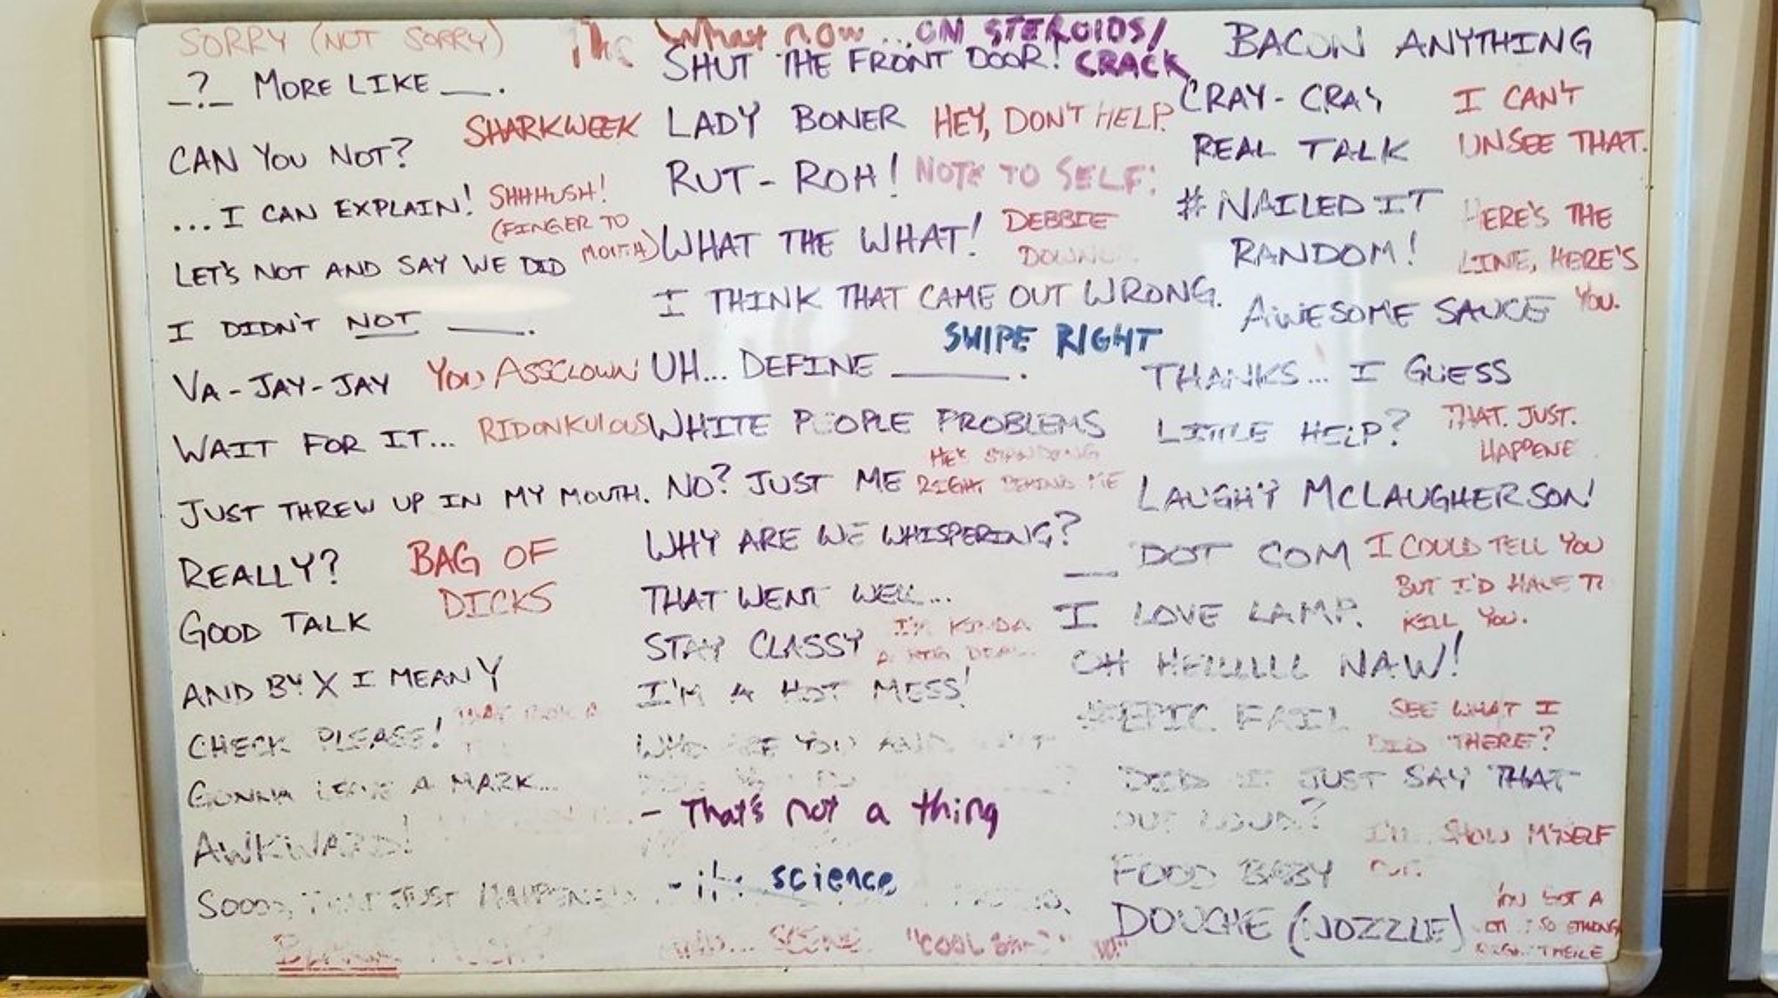 SORRY (NOT SORRY)
_?_ MORE LIKE ___.
SHARKWEEK
CAN YOU NOT?
...I CAN EXPLAIN!
SHHHUSH!
(FINGER TO
MOUTH)
LET'S NOT AND SAY WE DID
I DIDN'T NOT ____.
VA-JAY-JAY
YOU ASSCLOWN
WAIT FOR IT...
RIDONKULOUS
JUST THREW UP IN MY MOUTH.
REALLY?
BAG OF
DICKS
GOOD TALK
AND BY X I MEAN Y
CHECK PLEASE!
GONNA LEAVE A MARK...
AWKWARD!
SOOOO, THAT JUST HAPPENED
What now
...ON STEROIDS/
CRACK
SHUT THE FRONT DOOR!
LADY BONER
HEY, DON'T HELP.
RUT-ROH!
NOTE TO SELF:
WHAT THE WHAT!
DEBBIE
DOWNER
I THINK THAT CAME OUT WRONG.
SWIPE RIGHT
UH... DEFINE ______.
WHITE PEOPLE PROBLEMS
HE'S STANDING
RIGHT BEHIND ME
NO? JUST ME
WHY ARE WE WHISPERING?
THAT WENT WELL...
STAY CLASSY
I'M KINDA
A BIG DEAL
I'M A HOT MESS!
WHO ARE YOU AND
- That's not a thing
- science
SCENE
"COOL
BACON ANYTHING
CRAY-CRAY
I CAN'T
UNSEE THAT.
REAL TALK
#NAILED IT
HERE'S THE
LINE, HERE'S
YOU.
RANDOM!
AWESOME SAUCE
THANKS... I GUESS
LITTLE HELP?
THAT. JUST.
HAPPENE
LAUGHY MCLAUGHERSON!
__ DOT COM
I COULD TELL YOU
BUT I'D HAVE TO
KILL YOU.
I LOVE LAMP.
OH HELLLLL NAW!
#EPIC FAIL
SEE WHAT I
DID THERE?
DID I JUST SAY THAT
OUT LOUD?
I'LL SHOW MYSELF
OUT.
FOOD BABY
DOUCHE (NOZZLE)
YOU GOT A
SO STRONG
RIGHT THERE